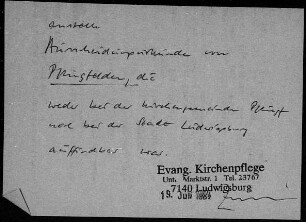 anstelle
Ausscheidungsurkunde von
Pflugfelden, die
weder bei der Kirchengemeinde Pflugf.
noch bei der Stadt Ludwigsburg
auffindbar war.
Evang. Kirchenpflege
Unt. Marktstr. 1 Tel. 23767
7140 Ludwigsburg
13. Juni 1989